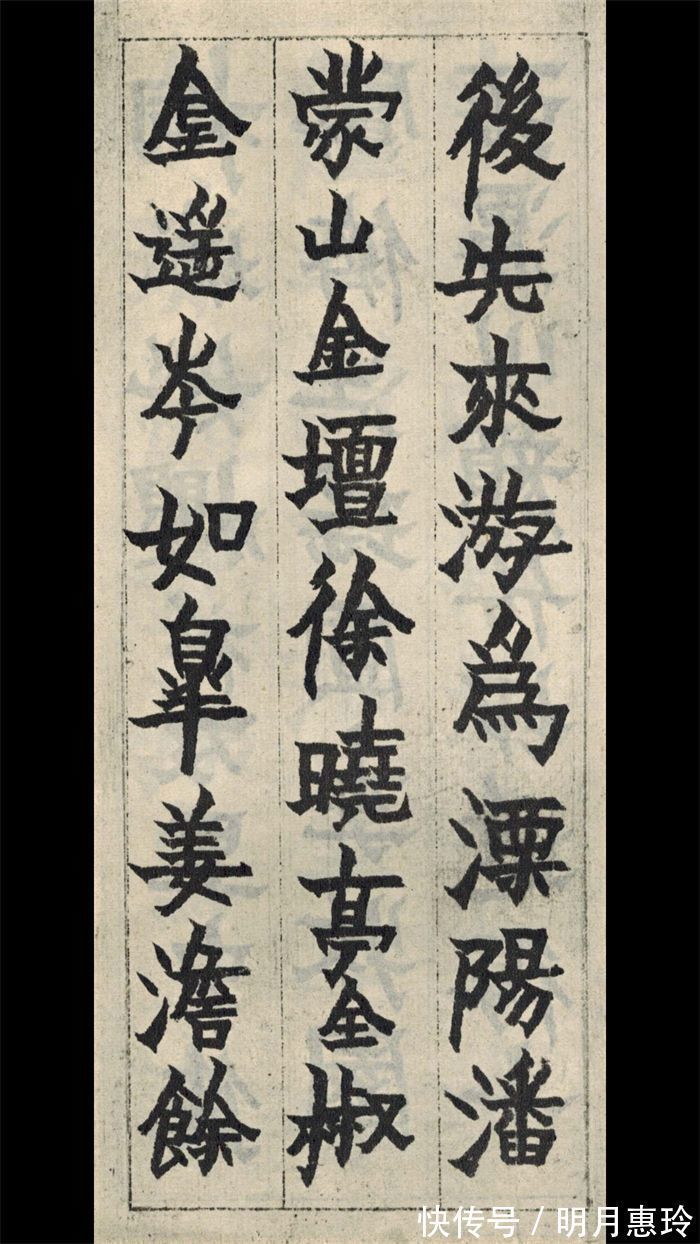 後先來游為溧陽潘
蒙山金壇徐曉亭全椒
金遥岑如皐姜澹餘
快传号／明月惠玲